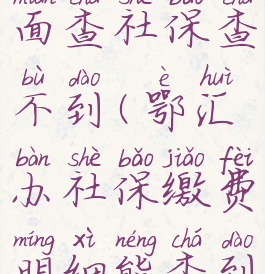 miàn chá shè bǎo chá
面查社保查
bù dào è huì
不到(鄂汇
bàn shè bǎo jiǎo fèi
办社保缴费
míng xì néng chá dào
明细能查到